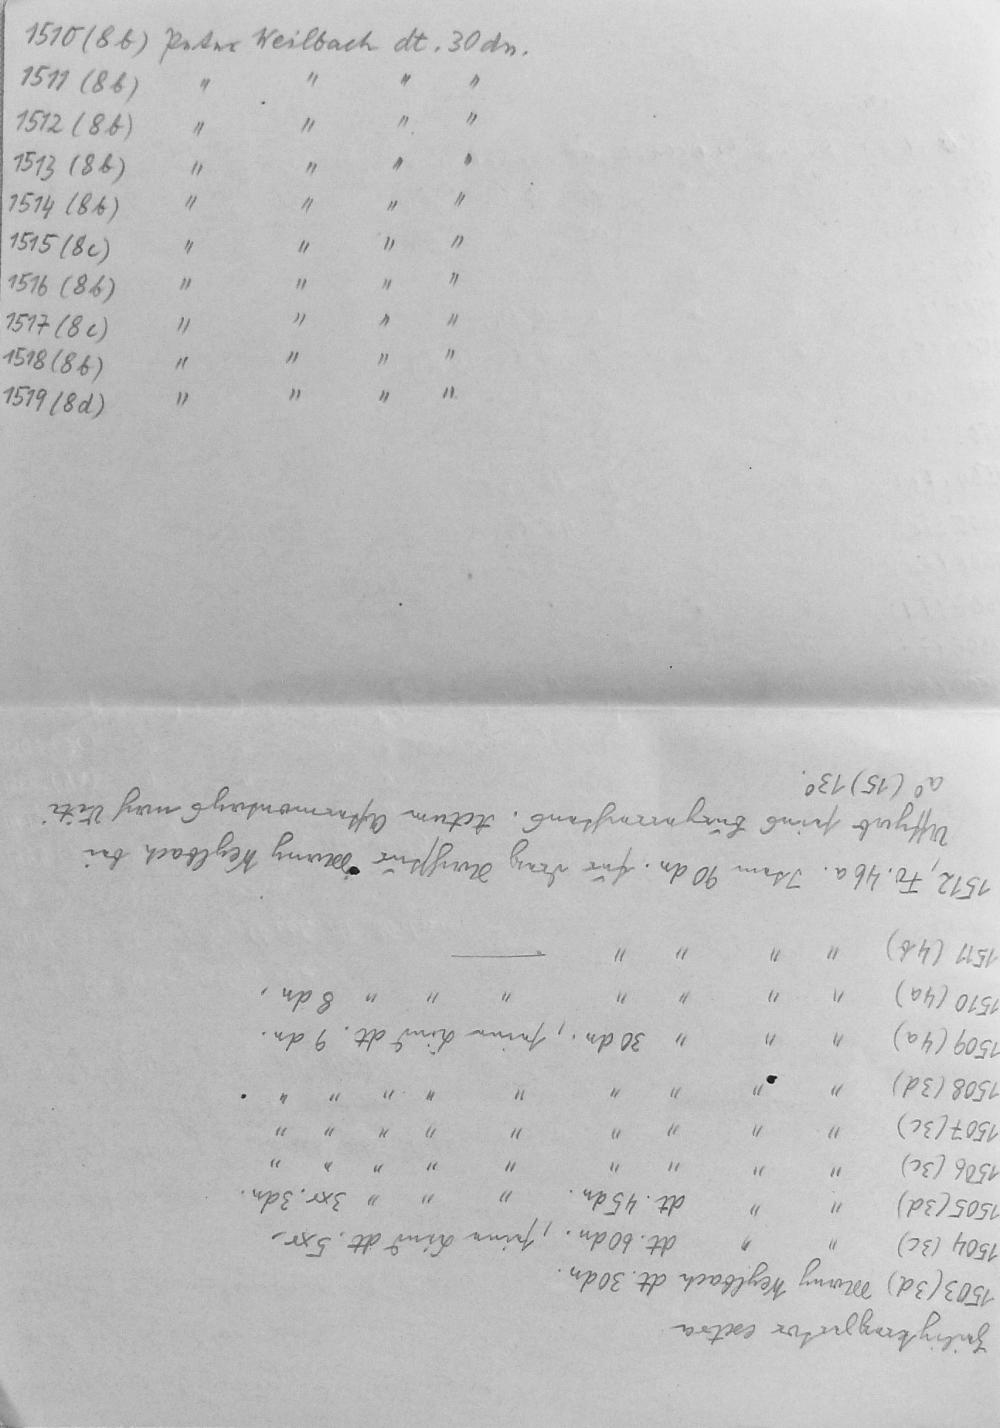 1510 (8b) Peter Weilbach dt. 30 dn.
1511 (8b) " " " "
1512 (8b) " " " "
1513 (8b) " " " "
1514 (8b) " " " "
1515 (8c) " " " "
1516 (8b) " " " "
1517 (8c) " " " "
1518 (8b) " " " "
1519 (8d) " " " "
extra
1503 (3d) Weylbach dt. 30 dn.
1504 (3c) " " dt. 60 dn., seine dt. 5 xr.
1505 (3d) " " dt. 45 dn. " " " 3 xr. 3 dn.
1506 (3c) " " " " " " " " "
1507 (3c) " " " " " " " " "
1508 (3d) " " " " " " " " " .
1509 (4a) " " " 30 dn., seine dt. 9 dn.
1510 (4a) " " " " " " " 8 dn.
1511 (4b) " " " " —
1512, Fo. 46a. Item 90 dn. für Weylbach bei
Uffgab seins Actum Aftermontags nach Viti
a° (15)13°.